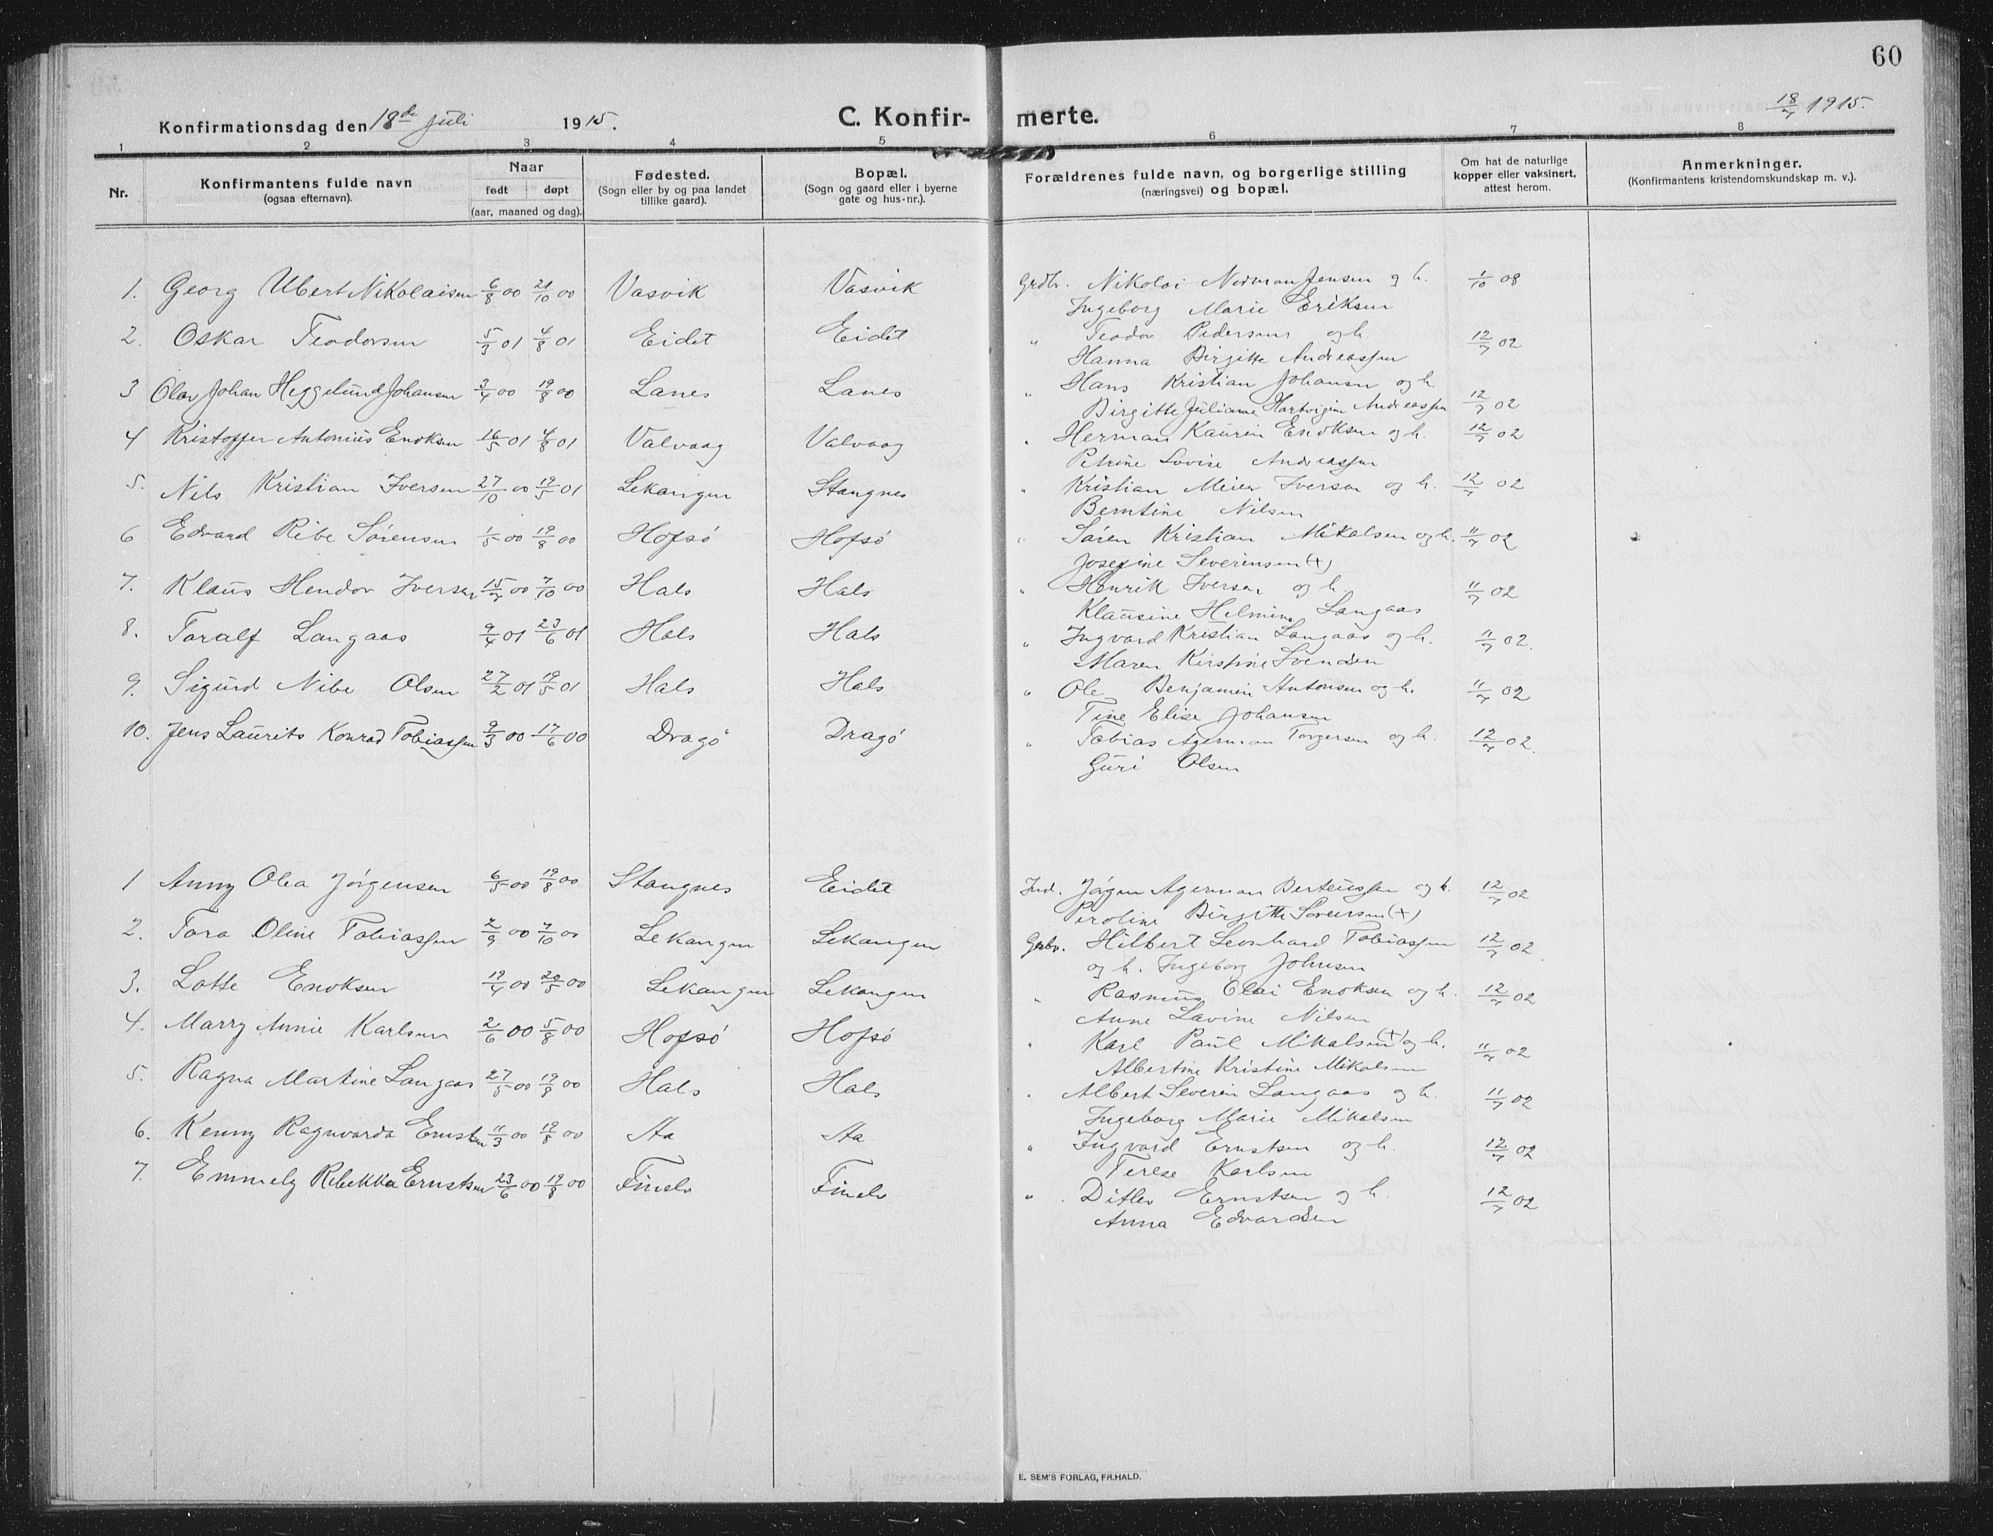 60
Konfirmationsdag den 18de Juli 1915.
C. Konfirmerte.
18/7 1915.
1 2 3 4 5 6 7 8
Nr.
Konfirmantens fulde navn
(ogsaa efternavn).
Naar
født døpt
(aar, maaned og dag).
Fødested.
(Sogn eller by og paa landet
tillike gaard).
Bopæl.
(Sogn og gaard eller i byerne
gate og hus-nr.).
Forældrenes fulde navn, og borgerlige stilling
(næringsvei) og bopæl.
Om hat de naturlige
kopper eller vaksinert,
attest herom.
Anmerkninger.
(Konfirmantens kristendomskundskap m. v.).
1. Georg Ubert Nikolaisen 6/8 00 21/10 00 Vasvik Vasvik Grdbr. Nikolai Norman Jensen og h. 1/10 08
Ingeborg Marie Eriksen
2. Oskar Teodorsen 5/3 01 4/8 01 Eidet Eidet " Teodor Pedersen og h. 12/7 02
Hanna Birgitte Andreassen
3 Olav Johan Heggelund Johansen 3/4 00 19/8 00 Lanes Lanes " Hans Kristian Johansen og h.
Birgitte Juliane Hartvigin Andreassen 12/7 02
4 Kristoffer Antonius Enoksen 16/5 01 4/8 01 Valvaag Valvaag " Herman Kaurin Enoksen og h. 12/7 02
Petrine Lovise Andreassen
5. Nils Kristian Iversen 27/10 00 19/5 01 Lekangen Stangnes " Kristian Meier Iversen og h. 12/7 02
Berntine Nilsen
6 Edvard Ribe Sørensen 1/5 00 19/8 00 Hofsø Hofsø " Søren Kristian Mikalsen og h. 11/7 02
Josefine Severinsen (+)
7. Klaus Hendor Iversen 15/7 00 7/10 00 Hals Hals " Henrik Iversen og h 11/7 02
Klausine Helmine Langaas
8. Toralf Langaas 9/4 01 23/6 01 Hals Hals " Ingvard Kristian Langaas og h. 11/7 02.
Maren Kirstine Svendsen
9. Sigurd Nibe Olsen 27/2 01 19/5 01 Hals Hals " Ole Benjamin Antonsen og h. 11/7 02
Tine Elise Johansen
10. Jens Laurits Konrad Tobiassen 9/3 00 17/6 00 Dragø Dragø " Tobias Agerman Torgersen og h. 12/7 02.
Guri Olsen
1 Anny Olea Jørgensen 6/5 00 19/8 00 Stangnes Eidet Ind. Jørgen Agerman Berteussen og h. 12/7 02
Peroline Birgitte Sørensen (+)
2. Tora Oline Tobiassen 2/9 00 7/10 00 Lekangen Lekangen Grdbr. Hilbert Leonhard Tobiassen 12/7 02.
og h. Ingeborg Johnsen
3. Lotte Enoksen 19/4 00 20/5 00 Lekangen Lekangen " Rasmus Elai Enoksen og h. 12/7 02
Anne Lavine Nilsen
4. Marry Annie Karlsen 2/6 00 5/8 00 Hofsø Hofsø " Karl Paul Mikalsen (+) og h. 11/7 02
Albertine Kristine Mikalsen
5. Ragna Martine Langaas 27/5 00 19/8 00 Hals Hals " Albert Severin Langaas og h. 11/7 02
Ingeborg Marie Mikalsen
6. Kenny Ragnvarda Ernstsen 11/3 00 19/8 00 Aa Aa " Ingvard Ernstsen og h. 12/7 02
Terese Karlsen
7. Emmely Rebekka Ernstsen 23/6 00 19/8 00 Finelv Finelv " Ditlev Ernstsen og h. 12/7 02
Anna Edvardsen
E. SEM'S FORLAG, FR.HALD.